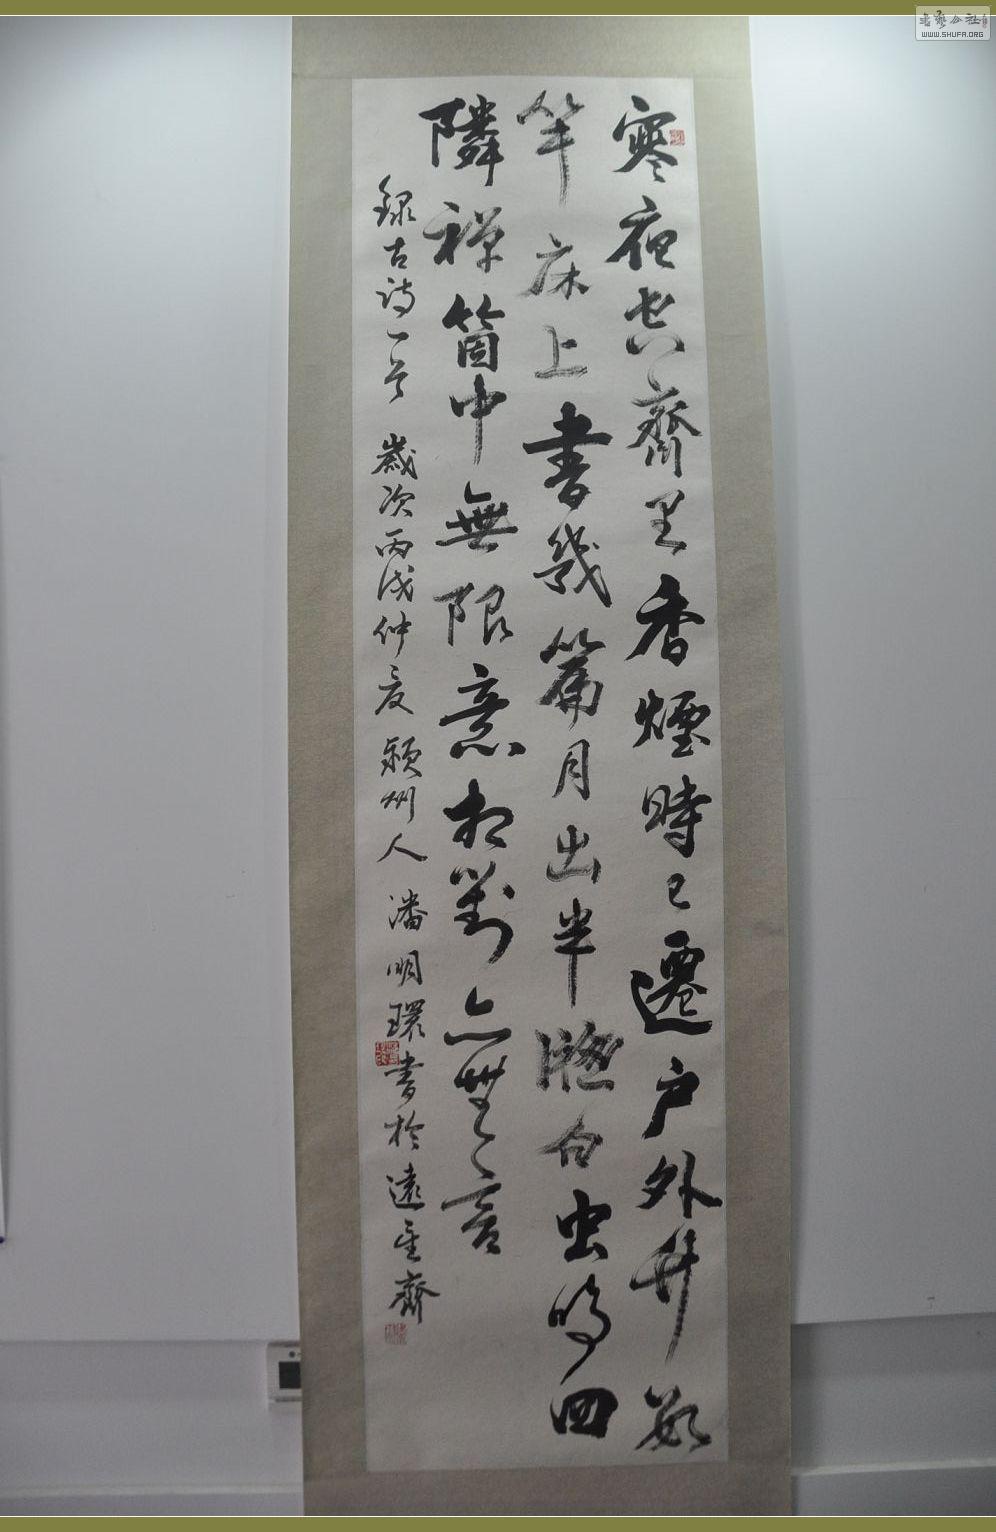 寒夜空齋里香煙時已遷户外竹數
竿床上書幾篇月出半牕白虫鳴四
隣禪箇中無限意相對亦無言
錄古詩一首 歲次丙戌仲夏 潁州人 潘明環書於遠望齋
书艺公社
WWW.SHUFA.ORG